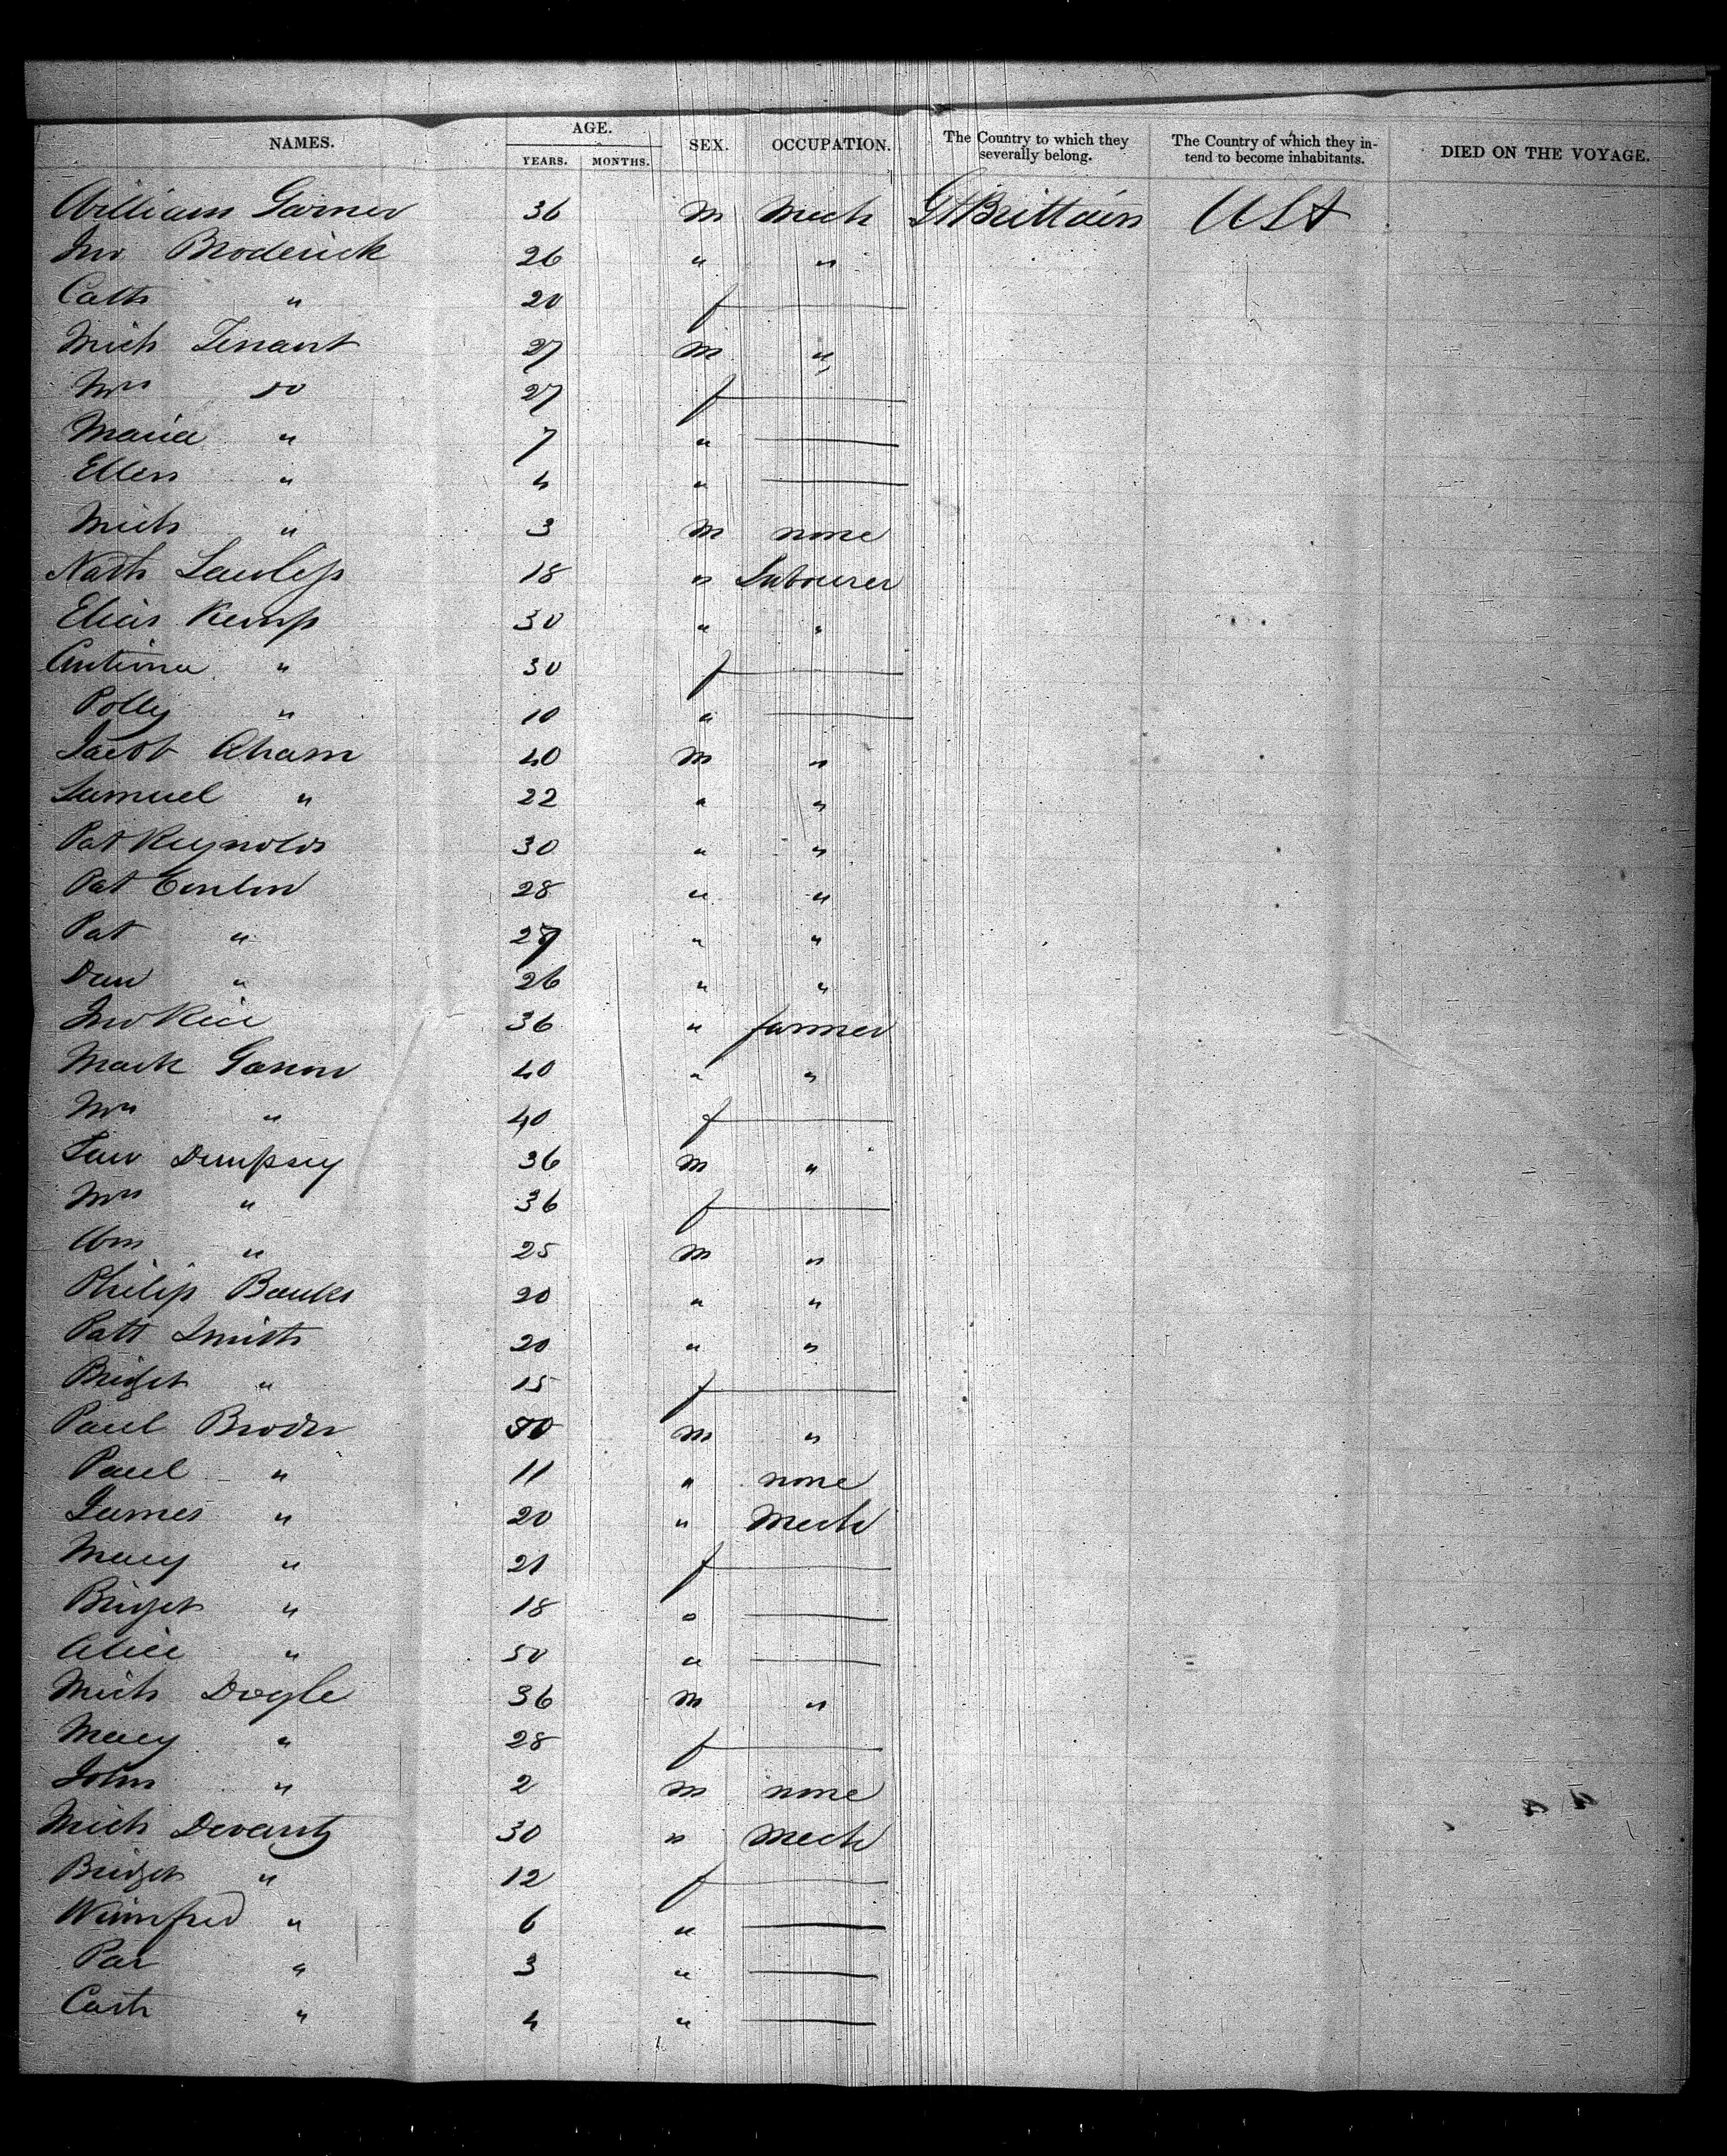 NAMES. AGE. YEARS. MONTHS. SEX. OCCUPATION. The Country to which they severally belong. The Country of which they intend to become inhabitants. DIED ON THE VOYAGE.
William Garner 36 m Mech Gt Brittain USA
Jno Broderick 26 " "
Cath " 20 f —
Mich Tenant 27 m "
Mrs do 27 f —
Maria " 7 " —
Ellen " 4 " —
Mich " 3 m none
Nath Lawless 18 " Labourer
Elias Kemp 30 " "
" 30 f —
Polly " 10 " —
Jacob Aham 40 m "
Samuel " 22 " "
Pat Reynolds 30 " "
Pat Conlon 28 " "
Pat " 27 " "
Dan " 26 " "
Jno Rice 36 " farmer
Mark 40 " "
Mrs " 40 f —
Law Dempsey 36 m "
Mrs " 36 f —
Wm " 25 m "
Philip Banks 20 " "
Patt Smith 20 " "
Bridget " 15 f —
Paul Broder m "
Paul " 11 " none
James " 20 " Mech
Mary " 21 f —
Bridget " 18 " —
Alice " 50 " —
Mich Doyle 36 m "
Mary " 28 f —
John " 2 m none
Mich 30 " Mech
Bridget " 12 f —
Winnfred " 6 " —
Pat " 3 " —
Cath " 4 " —